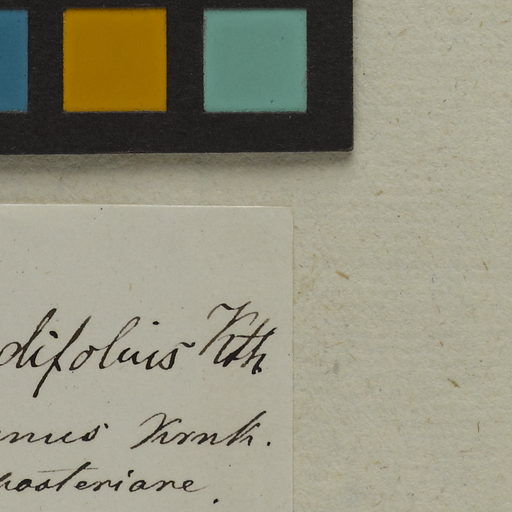 difolius Kth
nus Krnk.
posteriore.